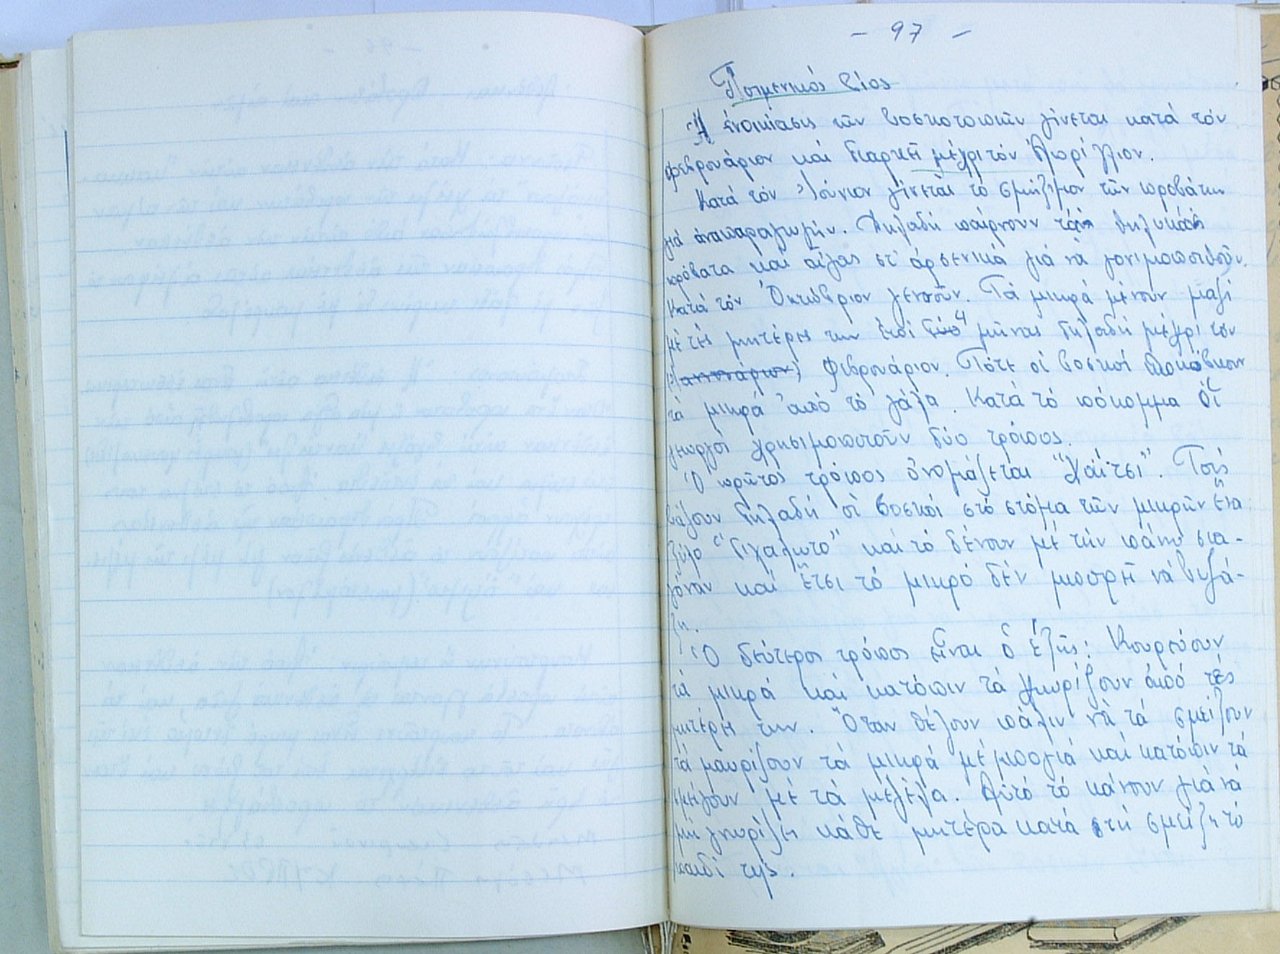 - 97 -
Ποιμενικός βίος
Ἡ ἐνοικίασις τῶν βοσκοτοπιῶν γίνεται κατά τόν
Φεβρουάριον καί διαρκεῖ μέχρι τόν Ἀπρίλιον.
Κατά τόν Ἰούνιον γίνεται τό σμίξιμον τῶν προβάτων
γιά ἀναπαραγωγήν. Δηλαδή παίρνουν τά θηλυκά
πρόβατα καί αἶγας στ' ἀρσενικά γιά νά γονιμοποιηθοῦν.
Κατά τόν Ὀκτώβριον γεννοῦν. Τά μικρά μένουν μαζί
μέ τές μητέρες των ἐπί δύο 4 μῆνας δηλαδή μέχρι τον
(Ἰανουάριον) Φεβρουάριον. Τότε οἱ βοσκοί ἀποκόβουν
τά μικρά ἀπό τό γάλα. Κατά τό πόκομμα οἱ
γεωργοί χρησιμοποιοῦν δύο τρόπους.
Ὁ πρῶτος τρόπος ὀνομάζεται "χαίτσι". Τούς
βάζουν δηλαδή οἱ βοσκοί στό στόμα τῶν μικρῶν ἕνα
ξύλο "διχαλωτό" καί τό δένουν μέ τήν πάνω σια-
γόναν καί ἔτσι τό μικρό δέν μπορεῖ νά βυζά-
ξη.
Ὁ δεύτερος τρόπος εἶναι ὁ ἑξῆς: Κουρεύουν
τά μικρά καί κατόπιν τά χωρίζουν ἀπό τές
μητέρες των. Ὅταν θέλουν πάλιν νά τά σμείξουν
τά μαυρίζουν τά μικρά μέ μπογιά καί κατόπιν τά
σμίγουν μέ τά μεγάλα. Αὐτό τό κάνουν γιά νά
μή γνωρίζη κάθε μητέρα κατά τή σμίξη τό
παιδί της.